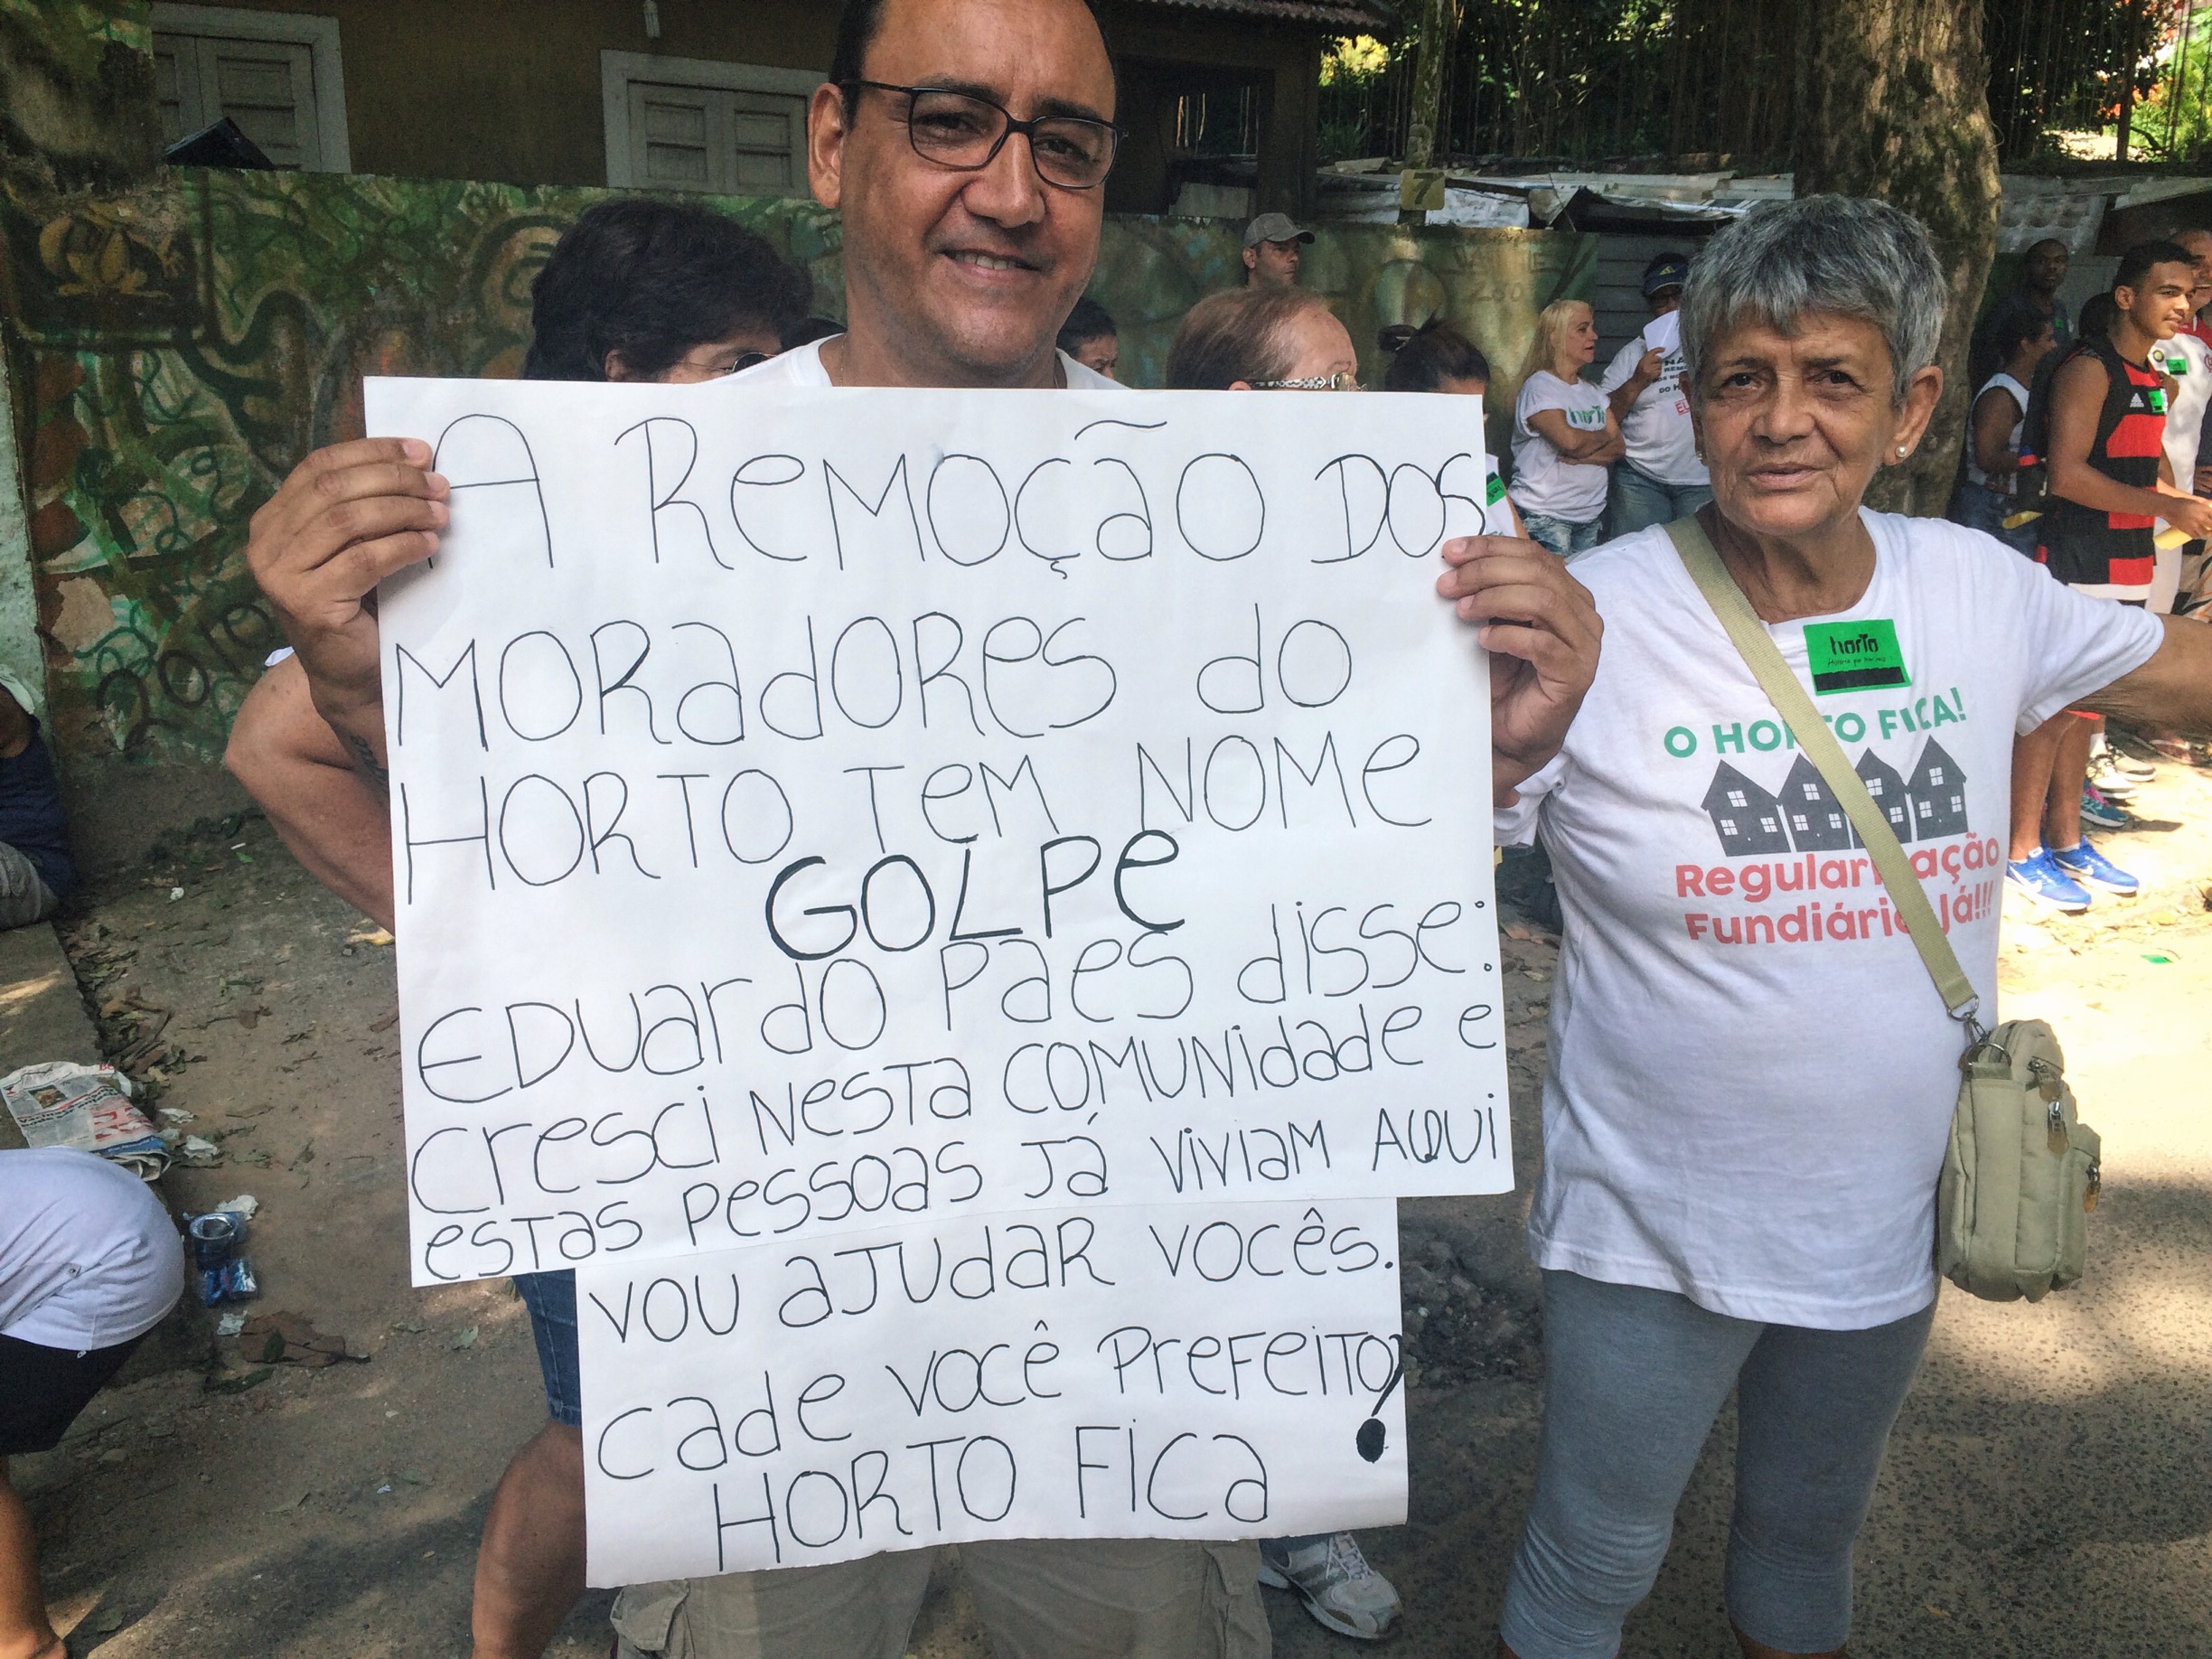 A REMOÇÃO DOS
MORADORES DO
HORTO TEM NOME
GOLPE
EDUARDO PAES DISSE:
CRESCI NESTA COMUNIDADE E
ESTAS PESSOAS JÁ VIVIAM AQUI
VOU AJUDAR VOCÊS.
CADE VOCÊ PREFEITO?
HORTO FICA
horTo
O HORTO FICA!
Regularização
Fundiária Já!!!
7
horTo